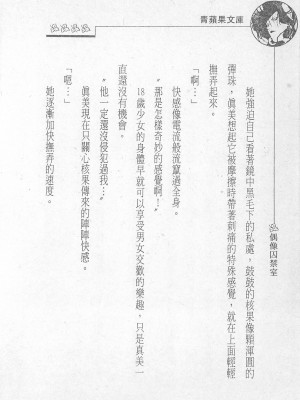 青蘋果文庫
偶像囚禁室
她強迫自己看著鏡中黑毛下的私處。鼓鼓的核果像顆渾圓的
彈珠，眞美想起它被摩擦時帶著刺痛的特殊感覺，就在上面輕輕
撫弄起來。
「啊…」
快感像電流般流竄過全身。
〝那是怎樣奇妙的感覺啊！〞
18歲少女的身體早就可以享受男女交歡的樂趣，只是真美一
直還沒有機會。
〝他一定還沒侵犯過我…〞
眞美現在只關心核果傳來的陣陣快感。
「嗯…」
她逐漸加快撫弄的速度。